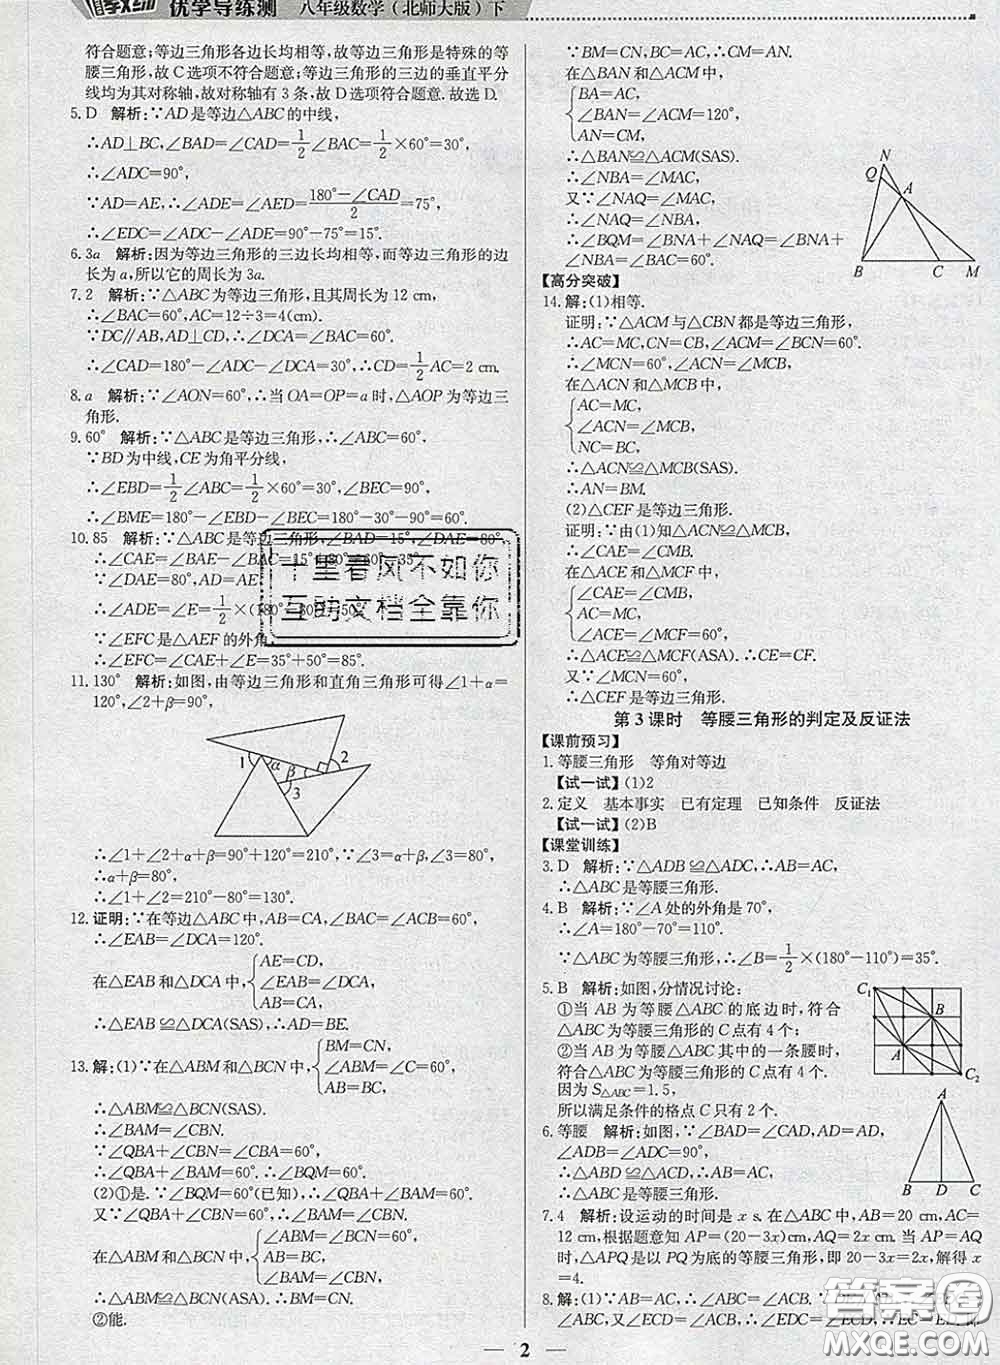 优学导练测 八年级数学(北师大版)下
符合题意;等边三角形各边长均相等,故等边三角形是特殊的等
腰三角形,故C选项不符合题意;等边三角形的三边的垂直平分
线均为其对称轴,故对称轴有3条,故D选项符合题意.故选D.
5. D 解析:∵AD是等边△ABC的中线,
∴AD⊥BC,∠BAD=∠CAD=1/2∠BAC=1/2×60°=30°,
∴∠ADC=90°,
∵AD=AE,∴∠ADE=∠AED=(180°-∠CAD)/2=75°,
∴∠EDC=∠ADC-∠ADE=90°-75°=15°.
6. 3a 解析:因为等边三角形的三边长均相等,而等边三角形的边
长为a,所以它的周长为3a.
7. 2 解析:∵△ABC为等边三角形,且其周长为12 cm,
∴∠BAC=60°,AC=12÷3=4(cm).
∵DC∥AB,AD⊥CD,∴∠DCA=∠BAC=60°.
∴∠CAD=180°-∠ADC-∠DCA=30°,∴CD=1/2AC=2 cm.
8. a 解析:∵∠AON=60°,∴当OA=OP=a时,△AOP为等边三
角形.
9. 60° 解析:∵△ABC是等边三角形,∴∠ABC=60°,
∵BD为中线,CE为角平分线,
∴∠EBD=1/2∠ABC=1/2×60°=30°,∠BEC=90°,
∴∠BME=180°-∠EBD-∠BEC=180°-30°-90°=60°.
10. 85 解析:∵△ABC是等边三角形,∠BAD=15°,∠DAE=80°,
∴∠CAE=∠BAE-∠BAC=15°+80°-60°=35°
∵∠DAE=80°,AD=AE
∴∠ADE=∠E=1/2×(180°-80°)=50°
∵∠EFC是△AEF的外角
∴∠EFC=∠CAE+∠E=35°+50°=85°.
十里春风不如你
互助文档全靠你
11. 130° 解析:如图,由等边三角形和直角三角形可得∠1+α=
120°,∠2+β=90°,
1 α β 2 3
∴∠1+∠2+α+β=90°+120°=210°,∵∠3=60°,∠3+α+β=180°,
∴α+β=180°-60°=120°,
∴∠1+∠2=210°-120°=90°,
12. 证明:∵在等边△ABC中,AB=CA,∠BAC=∠ACB=60°,
∴∠EAB=∠DCA=120°.
在△EAB和△DCA中,{AE=CD,
∠EAB=∠DCA,
AB=CA,
∴△EAB≌△DCA(SAS),∴AD=BE.
13. 解:(1)∵在△ABM和△BCN中,{BM=CN,
∠ABM=∠C=60°,
AB=BC,
∴△ABM≌△BCN(SAS).
∴∠BAM=∠CBN.
∵∠QBA+∠CBN=∠CBA=60°,
∴∠QBA+∠BAM=60°.∴∠BQM=60°.
(2)①是.∵∠BQM=60°(已知),∴∠QBA+∠BAM=60°.
又∵∠QBA+∠CBN=60°,∴∠BAM=∠CBN.
在△ABM和△BCN中,{∠ABM=∠C=60°,
AB=BC,
∠BAM=∠CBN,
∴△ABM≌△BCN(ASA).∴BM=CN.
②能.
∵BM=CN,BC=AC,∴CM=AN.
在△BAN和△ACM中,
{BA=AC,
∠BAN=∠ACM=120°,
AN=CM,
∴△BAN≌△ACM(SAS).
∴∠NBA=∠MAC.
又∵∠NAQ=∠MAC,
∴∠NAQ=∠NBA,
∴∠BQM=∠BNA+∠NAQ=∠BNA+
∠NBA=∠BAC=60°.
N Q A B C M
【高分突破】
14. 解:(1)相等.
证明:∵△ACM与△CBN都是等边三角形,
∴AC=MC,CN=CB,∠ACM=∠BCN=60°.
∴∠MCN=60°,∠ACN=∠MCB,
在△ACN和△MCB中,
{AC=MC,
∠ACN=∠MCB,
NC=BC,
∴△ACN≌△MCB(SAS).
∴AN=BM.
(2)△CEF是等边三角形.
证明:∵由(1)知△ACN≌△MCB,
∴∠CAE=∠CMB.
在△ACE和△MCF中,
{∠CAE=∠CMF,
AC=MC,
∠ACE=∠MCF=60°,
∴△ACE≌△MCF(ASA).∴CE=CF.
又∵∠MCN=60°,
∴△CEF是等边三角形.
第3课时 等腰三角形的判定及反证法
【课前预习】
1. 等腰三角形 等角对等边
【试一试】(1)2
2. 定义 基本事实 已有定理 已知条件 反证法
【试一试】(2)B
【课堂训练】
3. D 解析:∵△ADB≌△ADC,∴AB=AC,
∴△ABC是等腰三角形.
4. B 解析:∵∠A处的外角是70°,
∴∠A=180°-70°=110°.
∵△ABC为等腰三角形,∴∠B=1/2×(180°-110°)=35°.
5. B 解析:如图,分情况讨论:
①当AB为等腰△ABC的底边时,符合
△ABC为等腰三角形的C点有4个;
②当AB为等腰△ABC其中的一条腰时,
符合△ABC为等腰三角形的C点有4个.
因为S△ABC=1.5,
所以满足条件的格点C只有2个.
C₁ B A C₂
6. 等腰 解析:如图,∵∠BAD=∠CAD,AD=AD,
∠ADB=∠ADC,
∴△ABD≌△ACD,∴AB=AC,
∴△ABC是等腰三角形.
A B D C
7. 4 解析:设运动的时间是x s.在△ABC中,AB=20 cm,AC=
12 cm,根据题意知AP=(20-3x)cm,AQ=2x cm.当AP=AQ
时,△APQ是以PQ为底的等腰三角形,即20-3x=2x,解得x
=4.
2
答案圈
MXQE.COM